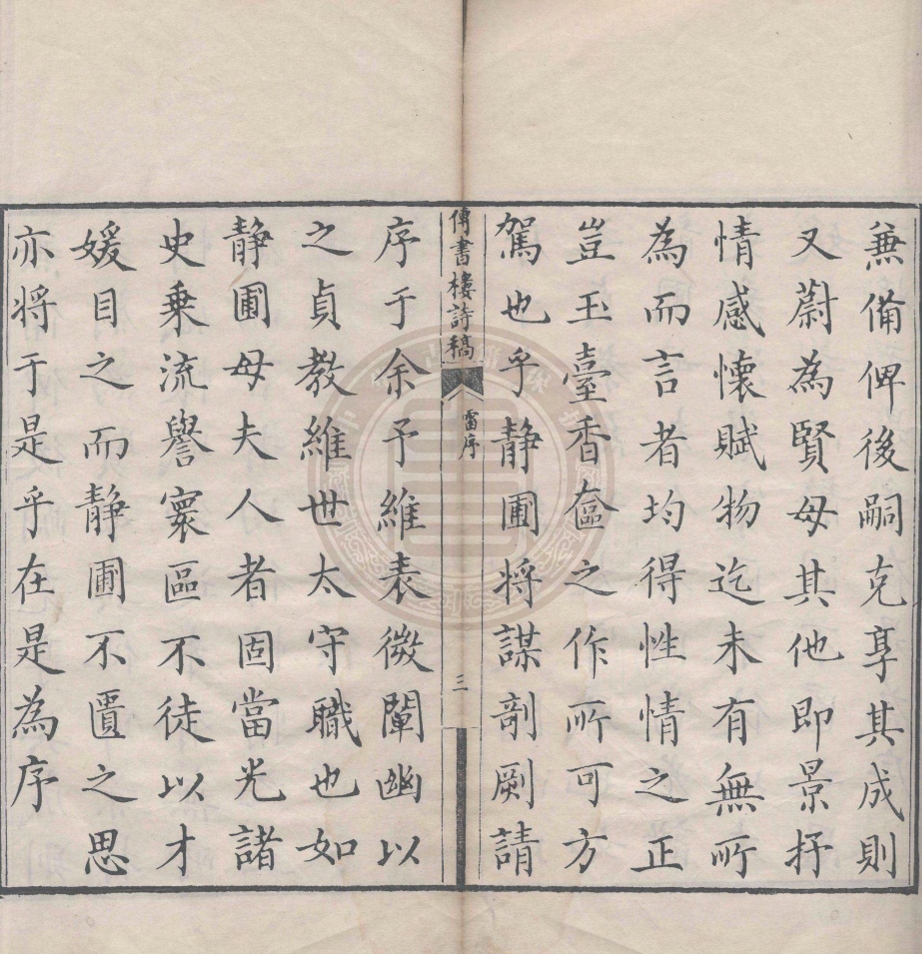 兼備俾後嗣克享其成則
又蔚為賢母其他即景抒
情感懷賦物迄未有無所
為而言者均得性情之正
豈玉臺香奩之作所可方
駕也乎静圃將謀剞劂請
傳書樓詩稿
雷序
三
序于余予維表微闡幽以
之貞教維世太守職也如
静圃母夫人者固當光諸
史乗流譽寰區不徒以才
媛目之而静圃不匱之思
亦將于是乎在是為序